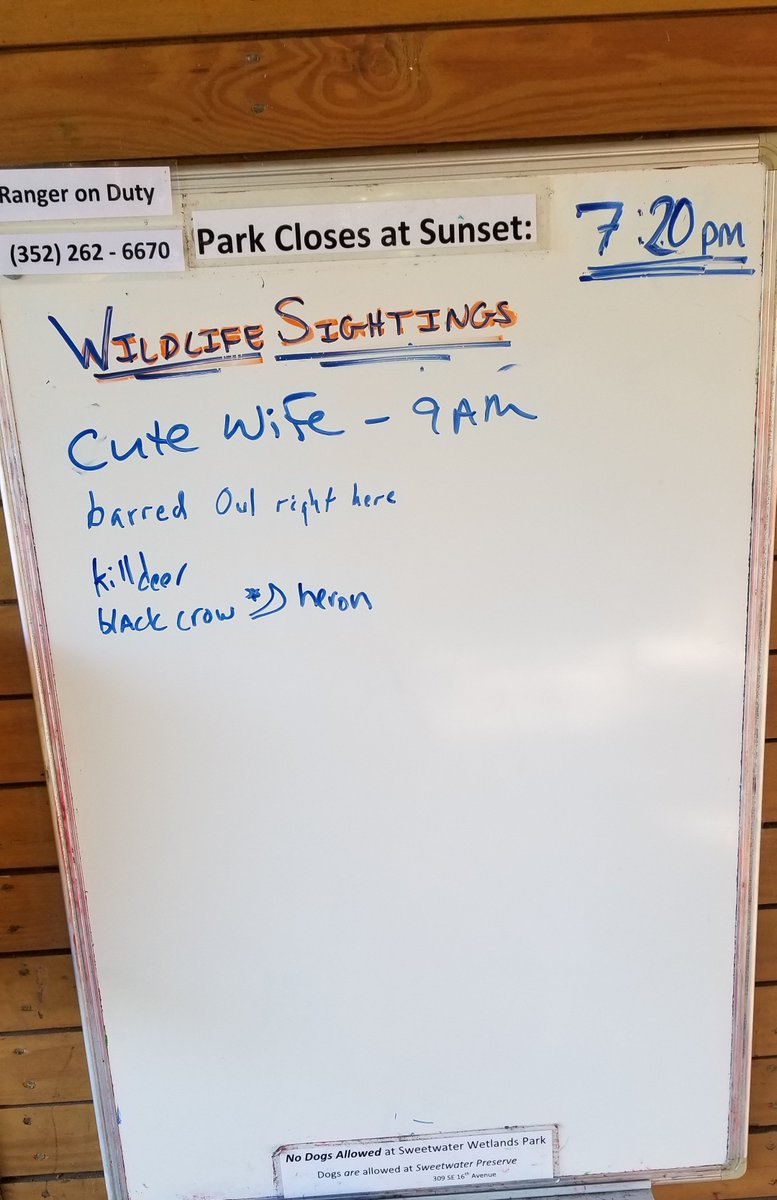 Ranger on Duty
(352) 262 - 6670
Park Closes at Sunset:
7:20 pm
WILDLIFE SIGHTINGS
Cute Wife - 9AM
barred Owl right here
killdeer
black crow * heron
No Dogs Allowed at Sweetwater Wetlands Park
Dogs are allowed at Sweetwater Preserve
309 SE 16th Avenue